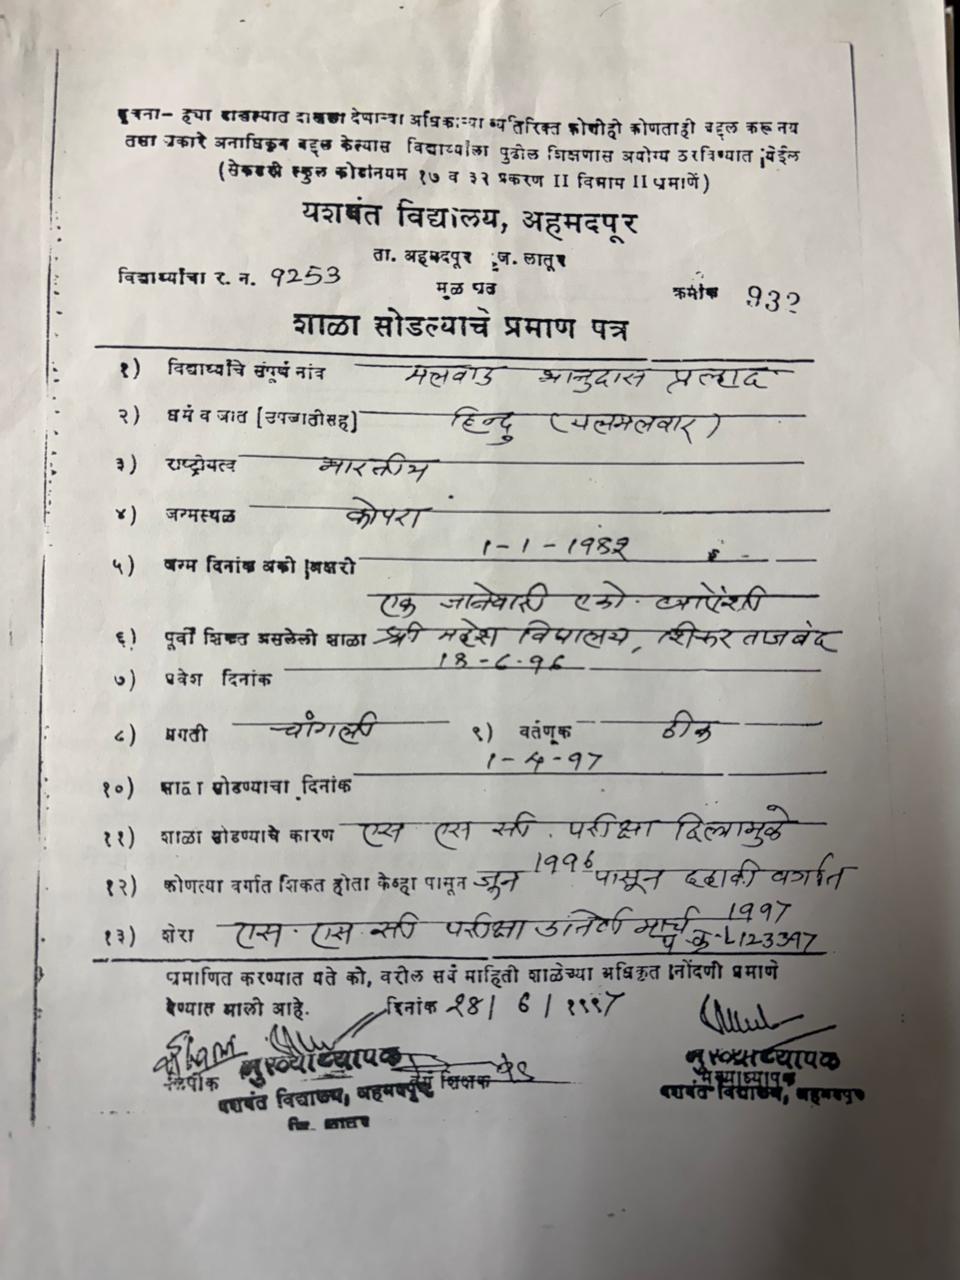 सूचना- ह्या दाखल्यात दाखला देणाऱ्या अधिकाऱ्या व्यतिरिक्त कोणीही कोणताही बद्दल करू नये
तसा प्रकारे अनाधिकृत बद्दल केल्यास विद्यार्थ्याला पुढील शिक्षणास अयोग्य ठरविण्यात येईल
(सेकंडरी स्कूल कोडनियम १७ व ३२ प्रकरण II विभाग II प्रमाणें)
यशवंत विद्यालय, अहमदपूर
ता. अहमदपूर जि. लातूर
विद्यार्थ्याचा र. न. 9253 मूळ प्रत क्रमांक 932
शाळा सोडल्याचे प्रमाण पत्र
१) विद्यार्थ्याचे संपूर्ण नांव मलवाड भानुदास प्रल्हाद
२) धर्म व जात [उपजातीसह] हिन्दु (यलमलवार)
३) राष्ट्रीयत्व भारतीय
४) जन्मस्थळ कोपरा
५) जन्म दिनांक अंकी अक्षरी 1-1-1982
एक जानेवारी एको.
६) पूर्वी शिकत असलेली शाळा श्री महेश विद्यालय, शिरूर ताजबंद
७) प्रवेश दिनांक 18-6-96
८) प्रगती चांगली ९) वर्तणूक ठीक
१०) शाळा सोडण्याचा दिनांक 1-4-97
११) शाळा सोडण्याचे कारण एस एस सी. परीक्षा दिल्यामुळे
१२) कोणत्या वर्गात शिकत होता केव्हा पासून जून 1996 पासून दहावी वर्गात
१३) शेरा एस. एस सी परीक्षा उत्तीर्ण मार्च 1997
प. क्र. L123397
प्रमाणित करण्यात येते की, वरील सर्व माहिती शाळेच्या अधिकृत नोंदणी प्रमाणे
देण्यात आली आहे. दिनांक 28/6/१९९7
लिपीक मुख्याध्यापक वर्ग शिक्षक मुख्याध्यापक
मुख्याध्यापक
यशवंत विद्यालय, अहमदपूर यशवंत विद्यालय, अहमदपूर
जि. लातूर